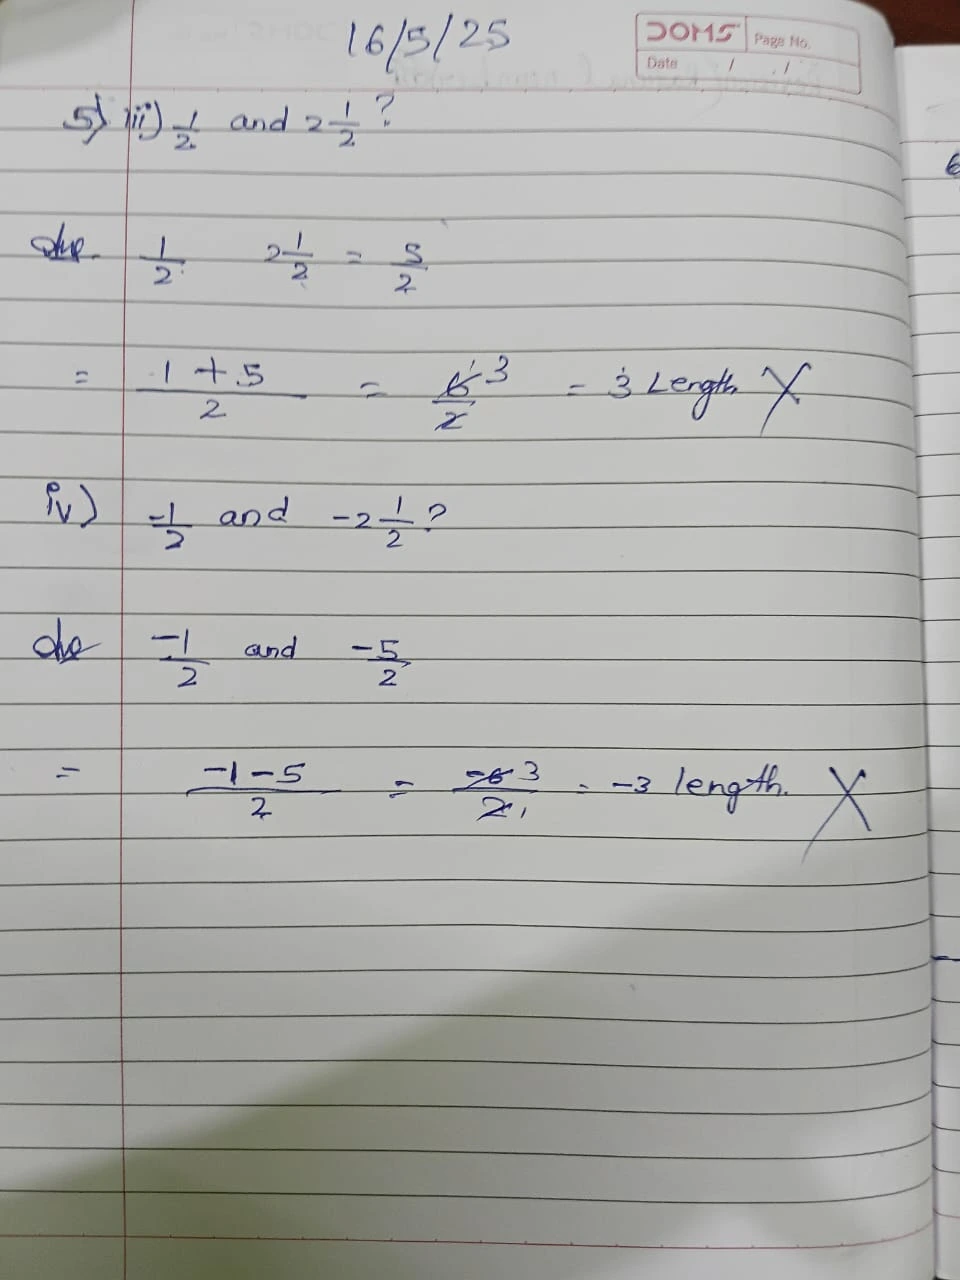 16/5/25
DOMS Page No.
Date / /
5) iii) 1/2 and 2 1/2 ?
1/2 2 1/2 = 5/2
= 1+5/2 = 6/2 3 = 3 Length X
iv) -1/2 and -2 1/2 ?
-1/2 and -5/2
= -1-5/2 = -6/2 3 1 = -3 length. X
6